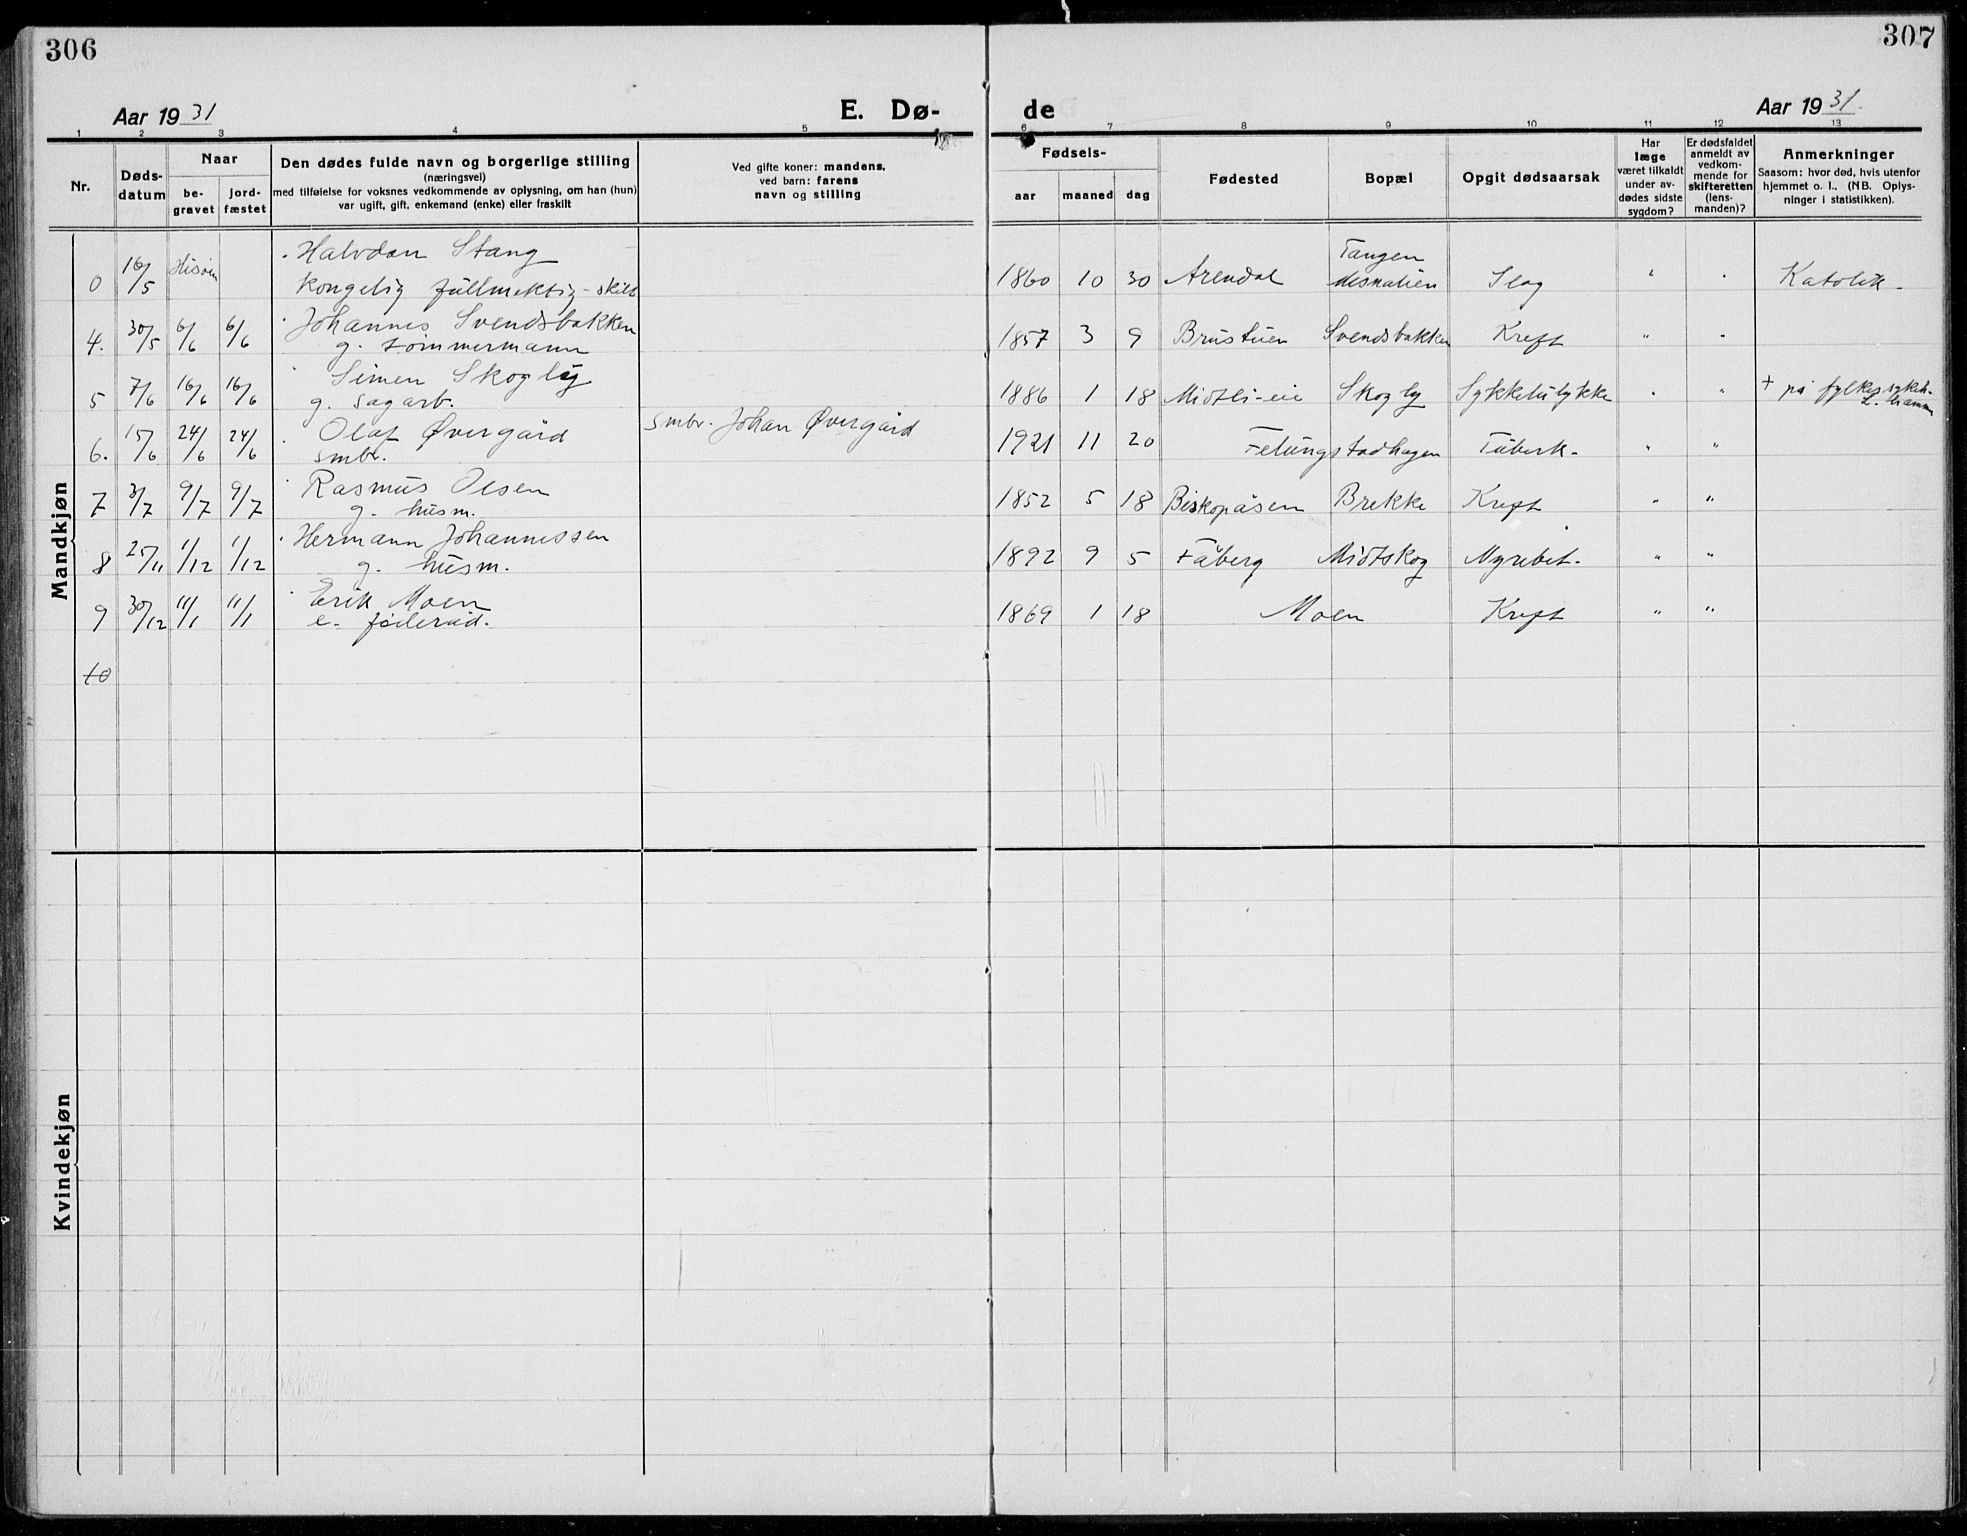 306
307
Aar 1931
E. Dø-
de
Aar 1931.
1 2 3 4 5 6 7 8 9 10 11 12 13
Nr.
Døds-
datum
Naar
be-
gravet
jord-
fæstet
Den dødes fulde navn og borgerlige stilling
(næringsvei)
med tilføielse for voksnes vedkommende av oplysning, om han (hun)
var ugift, gift, enkemand (enke) eller fraskilt
Ved gifte koner: mandens,
ved barn: farens
navn og stilling
Fødsels-
aar maaned dag
Fødested
Bopæl
Opgit dødsaarsak
Har
læge
været tilkaldt
under av-
dødes sidste
sygdom?
Er dødsfaldet
anmeldt av
vedkom-
mende for
skifteretten
(lens-
manden)?
Anmerkninger
Saasom: hvor død, hvis utenfor
hjemmet o. l., (NB. Oplys-
ninger i statistikken).
Mandkjøn
0 16/5 Hisøen Halvdan Stang
kongelig fullmektig - skilt
1860 10 30 Arendal Tangen
Slag " " Katolik -
4. 30/5 6/6 6/6 Johannes Svendsbakken
g. tømmermann
1857 3 9 Brustuen Svendsbakken Kreft " "
5 7/6 16/6 16/6 Simen Skogly
g. sagarb.
1886 1 18 Midtli-eie Skogly Sykkelulykke " " + på fylkessykeh.
L.hammer
6. 15/6 24/6 24/6 Olaf Øvergård
smbr.
smbr. Johan Øvergård
1921 11 20 Felungstadhagen Tuberk. " "
7 3/7 9/7 9/7 Rasmus Olsen
g. husm.
1852 5 18 Biskopåsen Brekke Kreft " "
8 25/11 1/12 1/12 Hermann Johannessen
g. husm.
1892 9 5 Fåberg Midtskog Nyrebet. " "
9 30/12 11/1 11/1 Erik Moen
e. føderåd.
1869 1 18 Moen Kreft " "
10
Kvindekjøn